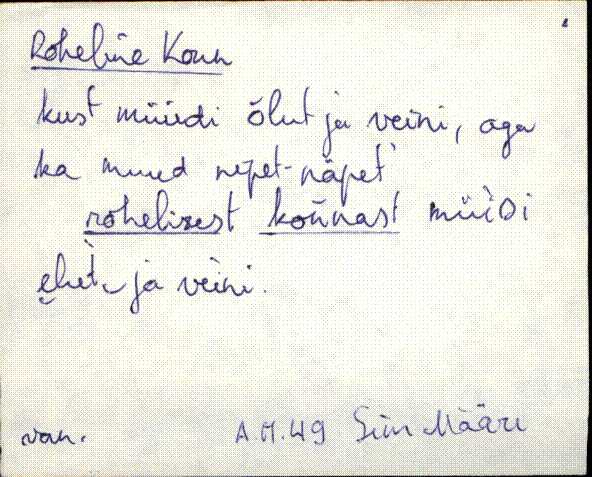 Roheline Konn
kust müüdi õlut ja veini, aga
ka muud nipet-näpet
rohelisest koǹnast müìDi
ehet ja veìni.
van. A.M.49 Siim Määri